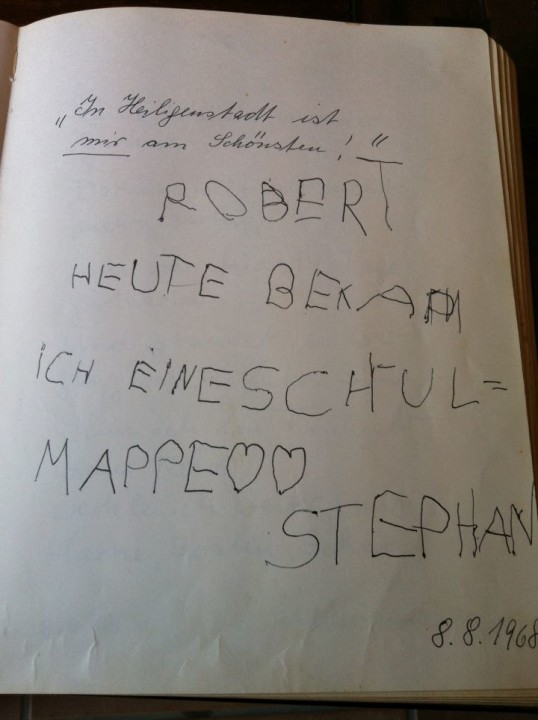 „In Heiligenstadt ist
mir am Schönsten!“
ROBERT
HEUTE BEKAM
ICH EINE SCHUL=
MAPPE♡♡
STEPHAN
8.8.1968